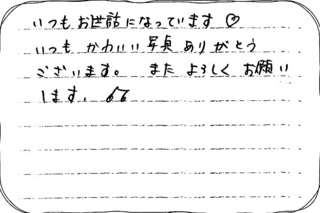 いつもお世話になっています♡
いつも かわいい写真ありがとう
ございます。 また よろしく お願い
します。